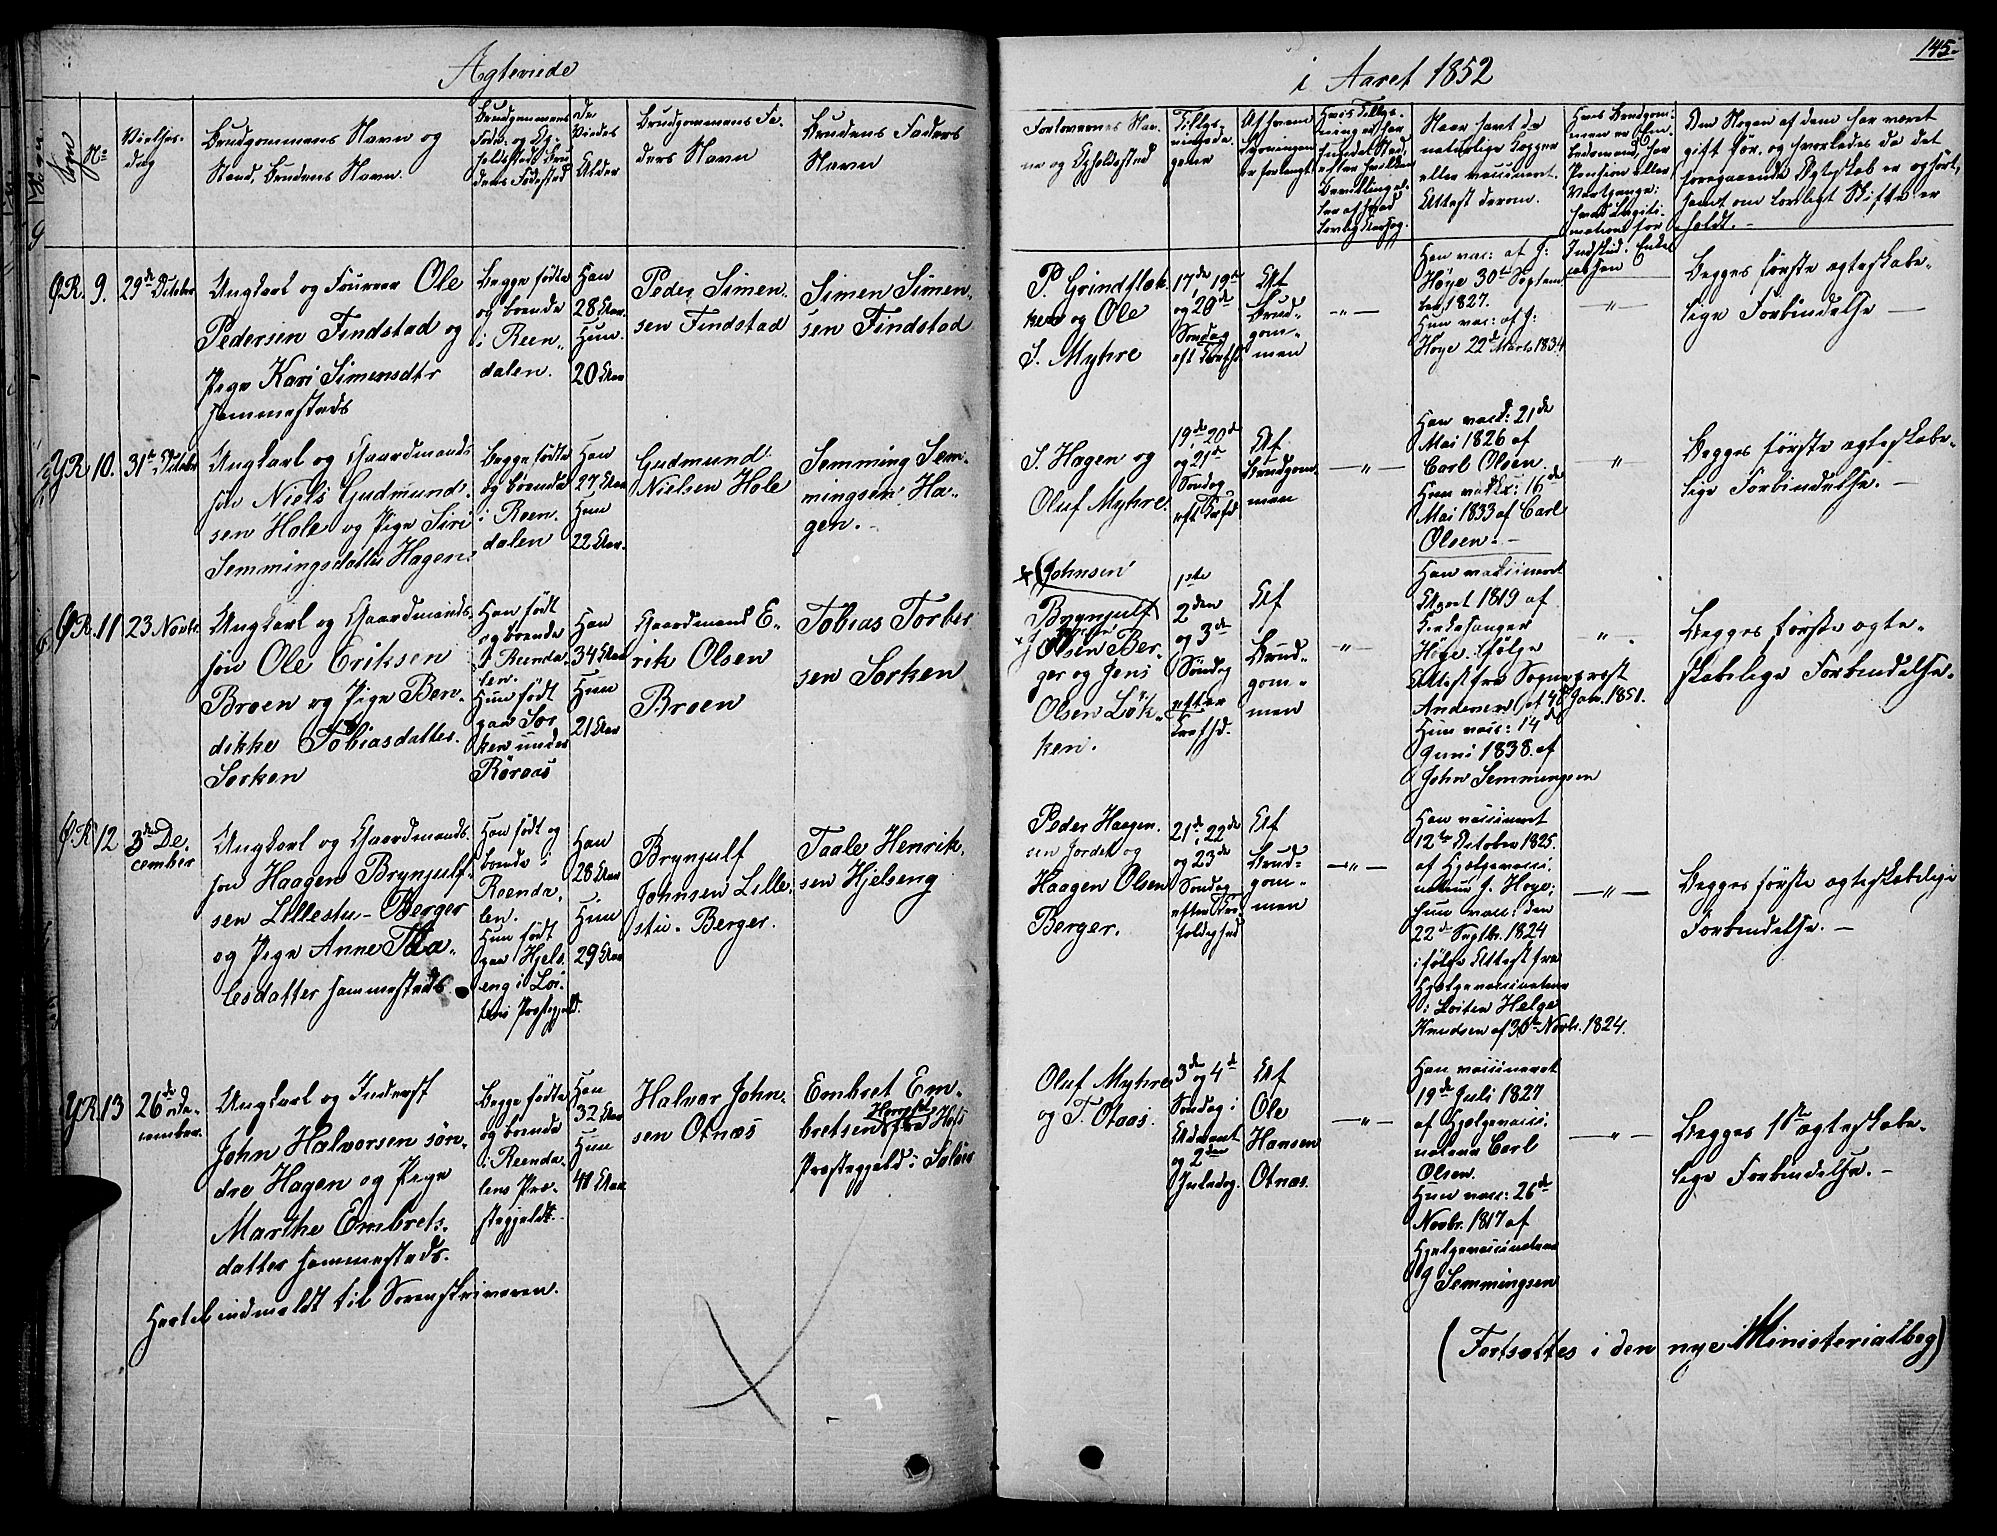 Ægteviede
i Aaret 1852
145.
Sogn
No
Vielses-
dag
Brudgommens Navn og
Stand, Brudens Navn.
Brudgommens
Føde- og Op-
holdsted, Bru
dens Fødested
De
Viedes
Alder
Brudgommens Fa-
ders Navn
Brudens Faders
Navn
Forlovernes Nav-
ne og Opholdsted
Tillys-
ningsda-
gene
Af hvem
Lysningen
er forlangt
Naar havt de
naturlige Kopper
eller vaccineret.
Attest derom.
Om Nogen af dem har været
gift før, og hvorledes da det
foregaaende Ægteskab er ophørt,
samt om lovligt Skifte er
holdt. -
ØR. 9. 29de October
Ungkarl og Foureer Ole
Pedersen Findstad og
Pige Kari Simensdtr
sammesteds
Begge fødte
og boende
i Reen-
dalen.
Han
28 Aar.
Hun.
20 Aar
Peder Simen
sen Findstad
Simen Simen-
sen Findstad
P. Grindflek
ken og Ole
S. Myhre
17de, 19de
og 20de
Søndag
eft Trefd.
Af
Brud-
gom-
men
- " -
Han vac: af J:
Høye 30te Septem
ber 1827.
Hun vac: af J:
Høye 22de Marts 1834
- " -
Begges første ægteskabe-
lige Forbindelse -
YR 10. 31te October
Ungkarl og Gaardmands
søn Niels Gudmund-
sen Hole og Pige Siri
Semmingsdatter Hagen.
Begge fødte
og boende
i Reen-
dalen
Han
27 Aar
Hun
22 Aar.
Gudmund
Nielsen Hole
Semming Sem-
mingsen Ha-
gen.
S. Hagen og
Oluf Myhre.
19de 20de
og 21de
Søndag
eft Trefd
Af
Brudgom
men
- " -
Han vacc: 21de
Mai 1826 af
Carl Olsen.
Hun vacc: 16de
Mai 1833 af Carl
Olsen. -
- " -
Begges første ægteskabe-
lige Forbindelse. -
ØR. 11 23 Novbr.
Ungkarl og Gaardmands-
søn Ole Eriksen
Broen og Pige Ben-
dikke Tobiasdatter.
Sorken
Han født
og boende
i Reenda-
len.
Hun født
paa Sor
ken under
Röraas
Han
34 Aar
Hun
21 Aar
Gaardmand E-
rik Olsen
Broen
Tobias Torber
sen Sorken
x (Johnsen
Brynjulf
Olsen Ber-
ger og Jens
Olsen Løk-
ken.
1ste
2den
og 3de
Søndag
efter
Trefhd.
Af
Brud-
gom-
men
- " -
Han vaccineret
August 1819 af
Kirkesanger
Høye ifølge
Attest fra Sognepræst
Andersen af 4de Janr. 1851.
Hun vacc: 14de
Juni 1838 af
John Semmingsen
- " -
Begges første ægte-
skabelige Forbindelse.
ØR 12 3de De-
cember
Ungkarl og Gaardmands
søn Haagen Brynjulf-
sen Lillestu-Berger
og Pige Anne Taa-
lesdatter sammesteds.
Han født og
boende i
Reenda-
len.
Hun født
paa Hjels
eng i Løi-
tens Prestegjeld.
Han
28 Aar
Hun
29 Aar
Brynjulf
Johnsen Lille
stu-Berger.
Taale Henrik-
sen Hjelseng
Peder Haagen
sen Jordet og
Haagen Olsen
Berger.
21de, 22de
og 23de
Søndag
efter Tre-
foldighed
Af
Brud-
gom-
men
- " -
Han vaccineret
12te October 1825.
af Hjelpevacci-
nateur J. Høye;
hun vacc: den
22de Septbr. 1824
ifølge Attest fra
Hjelpevaccinateur
i Løiten Helge
Knudsen af 30te Novbr. 1824.
- " -
Begges første ægteskabelige
Forbindelse. -
YR 13 26de De-
cember.
Ungkarl og Inderst
John Halvorsen søn-
dre Hagen og Pige
Marthe Embrets-
datter sammesteds.
Begge fødte
og boende
i Reenda-
lens Præ-
stegjeld.
Han
32 Aar
Hun
41 Aar
Halvor John-
sen Otnæs
Embret Em-
bretsen fra Hofs
Prestegjeld i Solør
Oluf Myhre
og T. Otnæs.
3de og 4de
Søndag i
Advent
og 2den
Juledag.
Af
Ole
Hansen
Otnæs.
- " -
Han vaccineret
19de Juli 1827
af Hjelpevacci-
nateur Carl
Olsen.
Hun vacc: 26de
Novbr. 1817 af
Hjelpevaccinateur
J Semmingsen
- " -
Begges 1ste ægteskabe-
lige Forbindelse. -
Hertil indmeldt til Sorenskriveren.
(Fortsættes i den nye Ministerialbog)